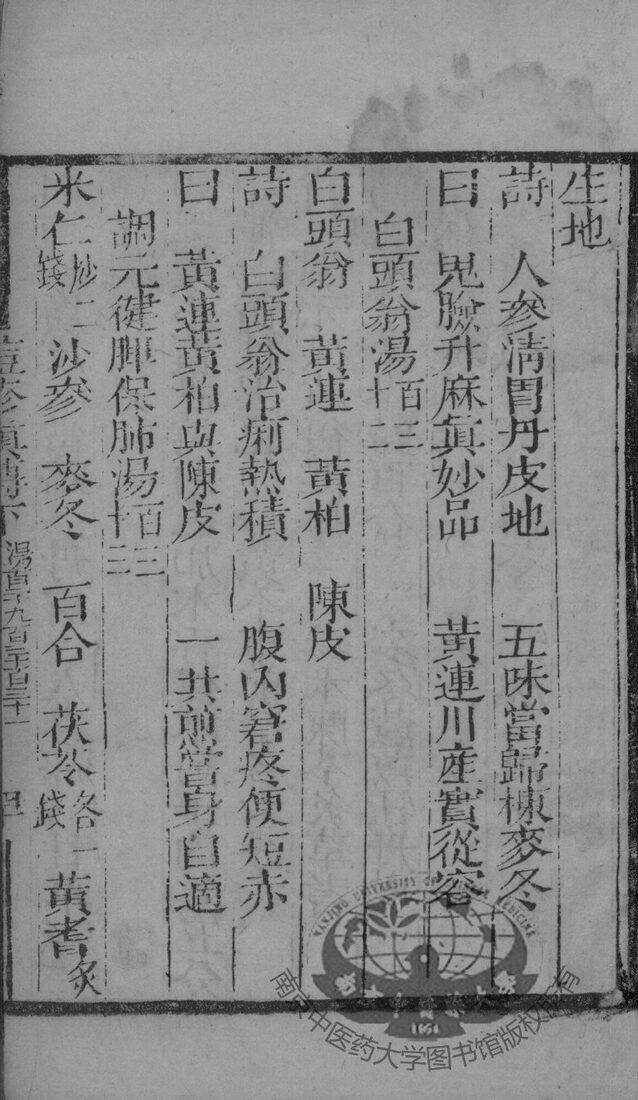 生地
詩　人參淸胃丹皮地　五味當歸棟麥冬
曰　鬼臉升麻眞妙品　黃連川産實從容
白頭翁湯百三十二
白頭翁　黃連　黃柏　陳皮
詩　白頭翁治痢熱積　腹內窘疼便短赤
曰　黃連黃柏與陳皮　一共煎嘗身自適
調元健脾保肺湯百三十三
米仁炒二錢　沙參　麥冬　百合　茯苓各一錢　黃耆炙
痘疹眞傳下
南京中医药大学图书馆版权所有
NANJING UNIVERSITY OF CHINESE MEDICINE
1954